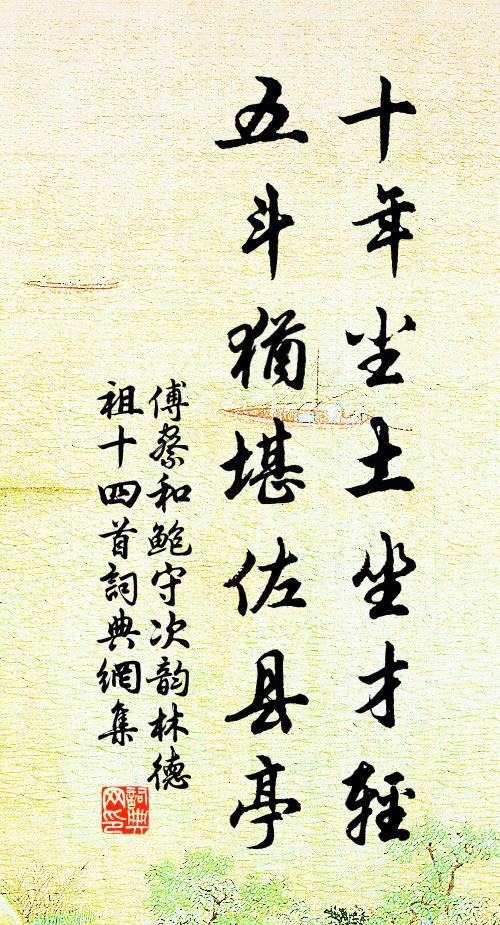 十年尘土坐才轻
五斗猶堪佐县亭
傅察和鲍守次韵林德
祖十四首詞典網集
詞典网印